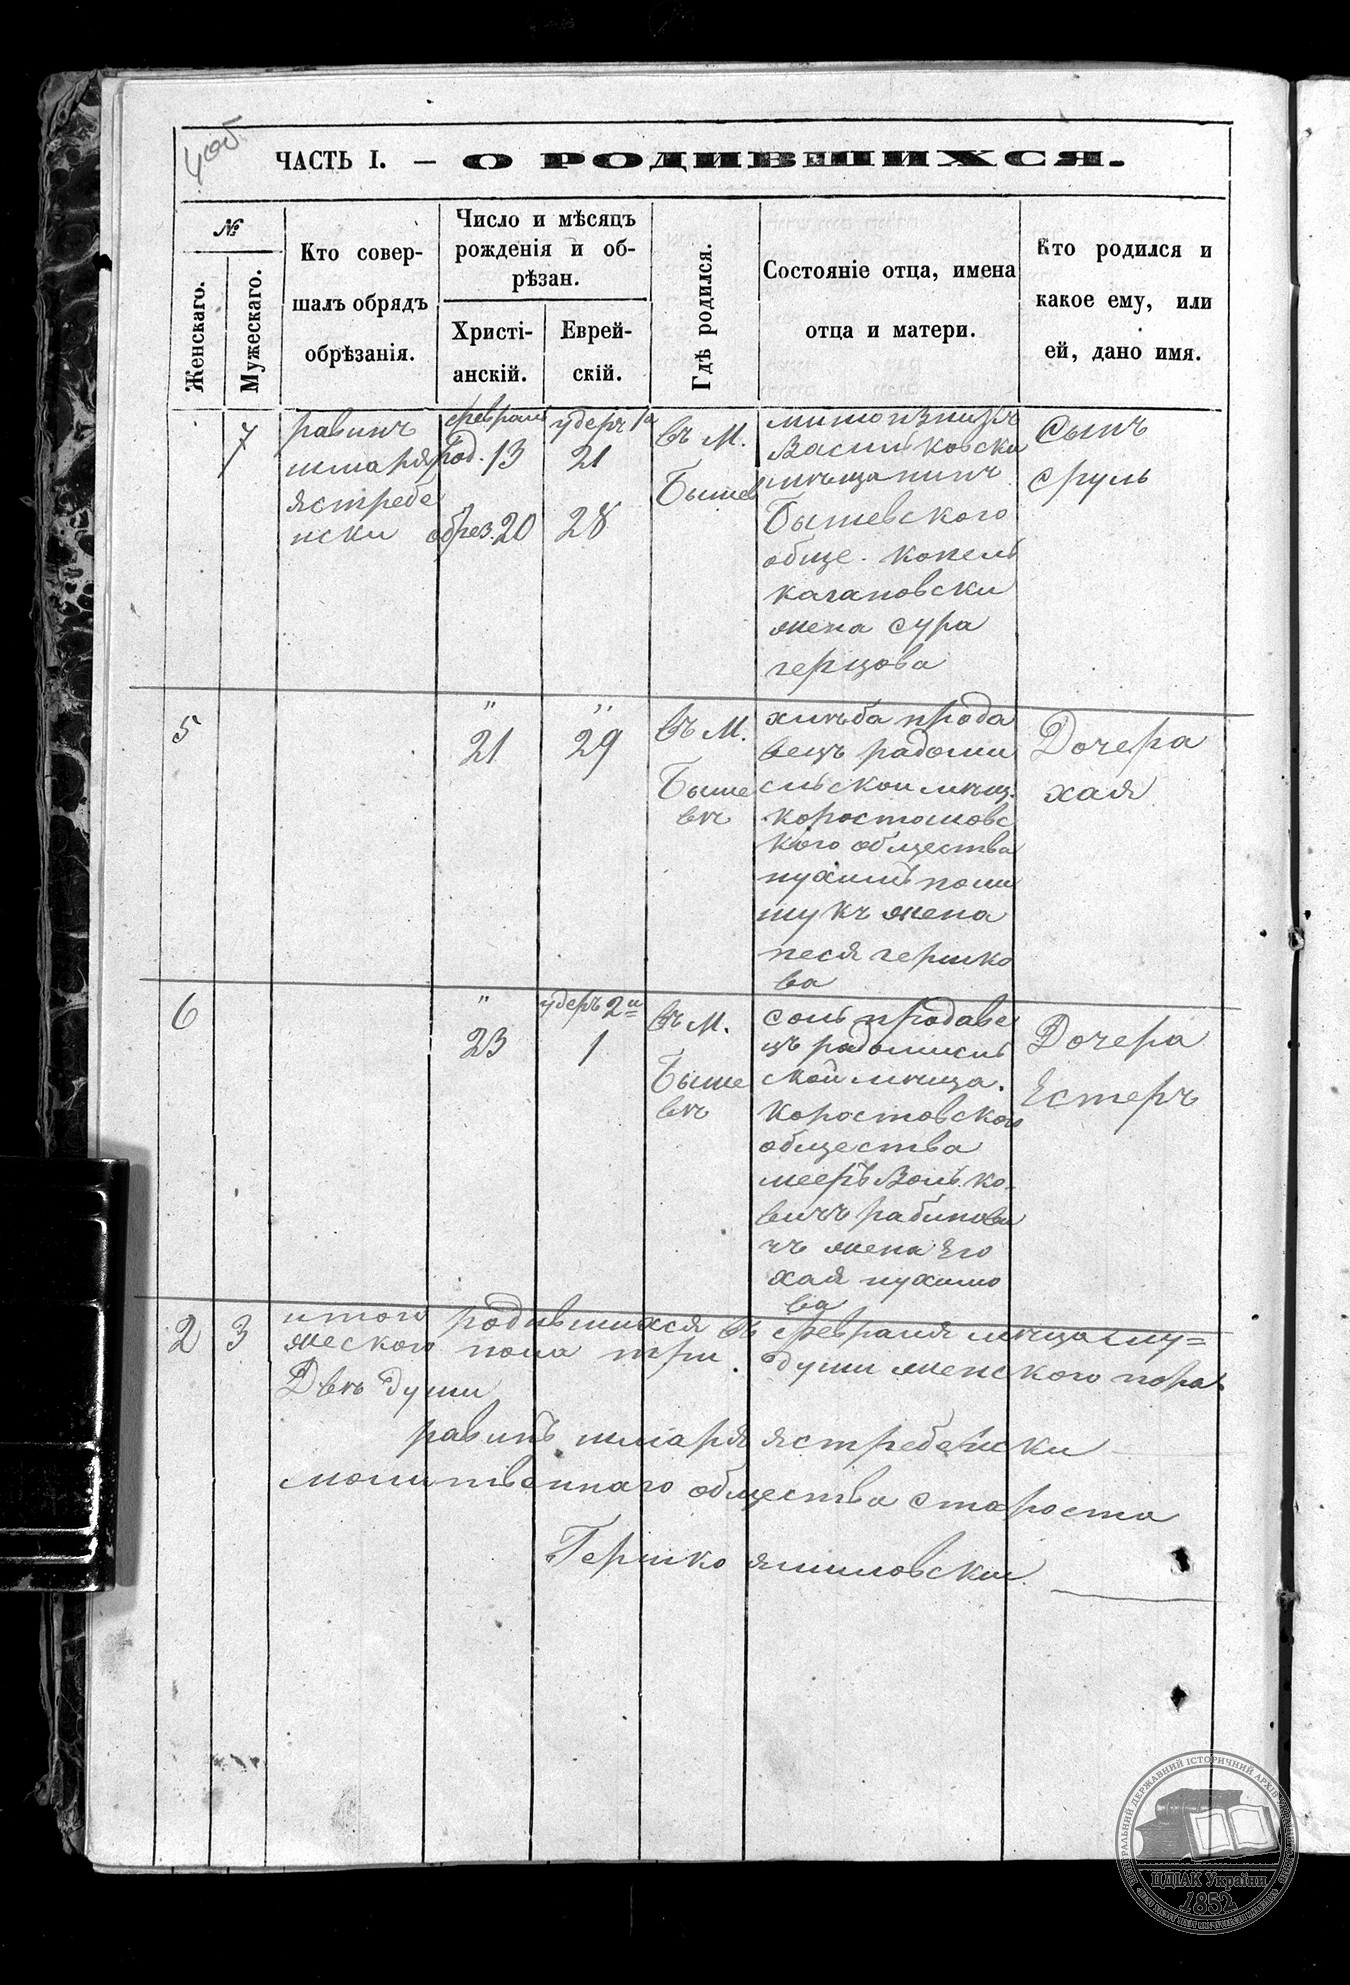 4об.
ЧАСТЬ I. — О РОДИВШИХСЯ.
№
Женскаго.
Мужескаго.
Кто совер-
шалъ обрядъ
обрѣзанія.
Число и мѣсяцъ
рожденія и об-
рѣзан.
Христі-
анскій.
Еврей-
скій.
Гдѣ родился.
Состояніе отца, имена
отца и матери.
Кто родился и
какое ему, или
ей, дано имя.
7
равинъ
шмаря
ястребе
нски
февраля
род. 13
обрез. 20
удеръ 1а
21
28
въ М.
Бышев
Васильковски
мѣщанинъ
Бышевского
обще. копель
кагановски
жена сура
герцова
Сынъ
сруль
5
"
21
"
29
въ М.
Быше
вѣ
хлѣба прода
вецъ радоми
сльской мѣщ.
коростошовс
кого общества
нухимъ поли
щукъ жена
песя гершко
ва
Дочера
хая
6
"
23
удеръ 2й
1
въ М.
Быше
вѣ
соль продаве
цъ радомысль
ской мѣща.
Коростовского
общества
мееръ Волько
вичъ рабинови
чъ жена Его
хая нухимо
ва
Дочера
Естеръ
2 3 итого родившихся въ февраля мѣца му=
жеского пола три души женского пола
Двѣ души
равинъ шмаря ястребенски
молитвеннаго общества староста
Гершко
ЦЕНТРАЛЬНИЙ ДЕРЖАВНИЙ ІСТОРИЧНИЙ АРХІВ УКРАЇНИ
ЦДІАК України
1852